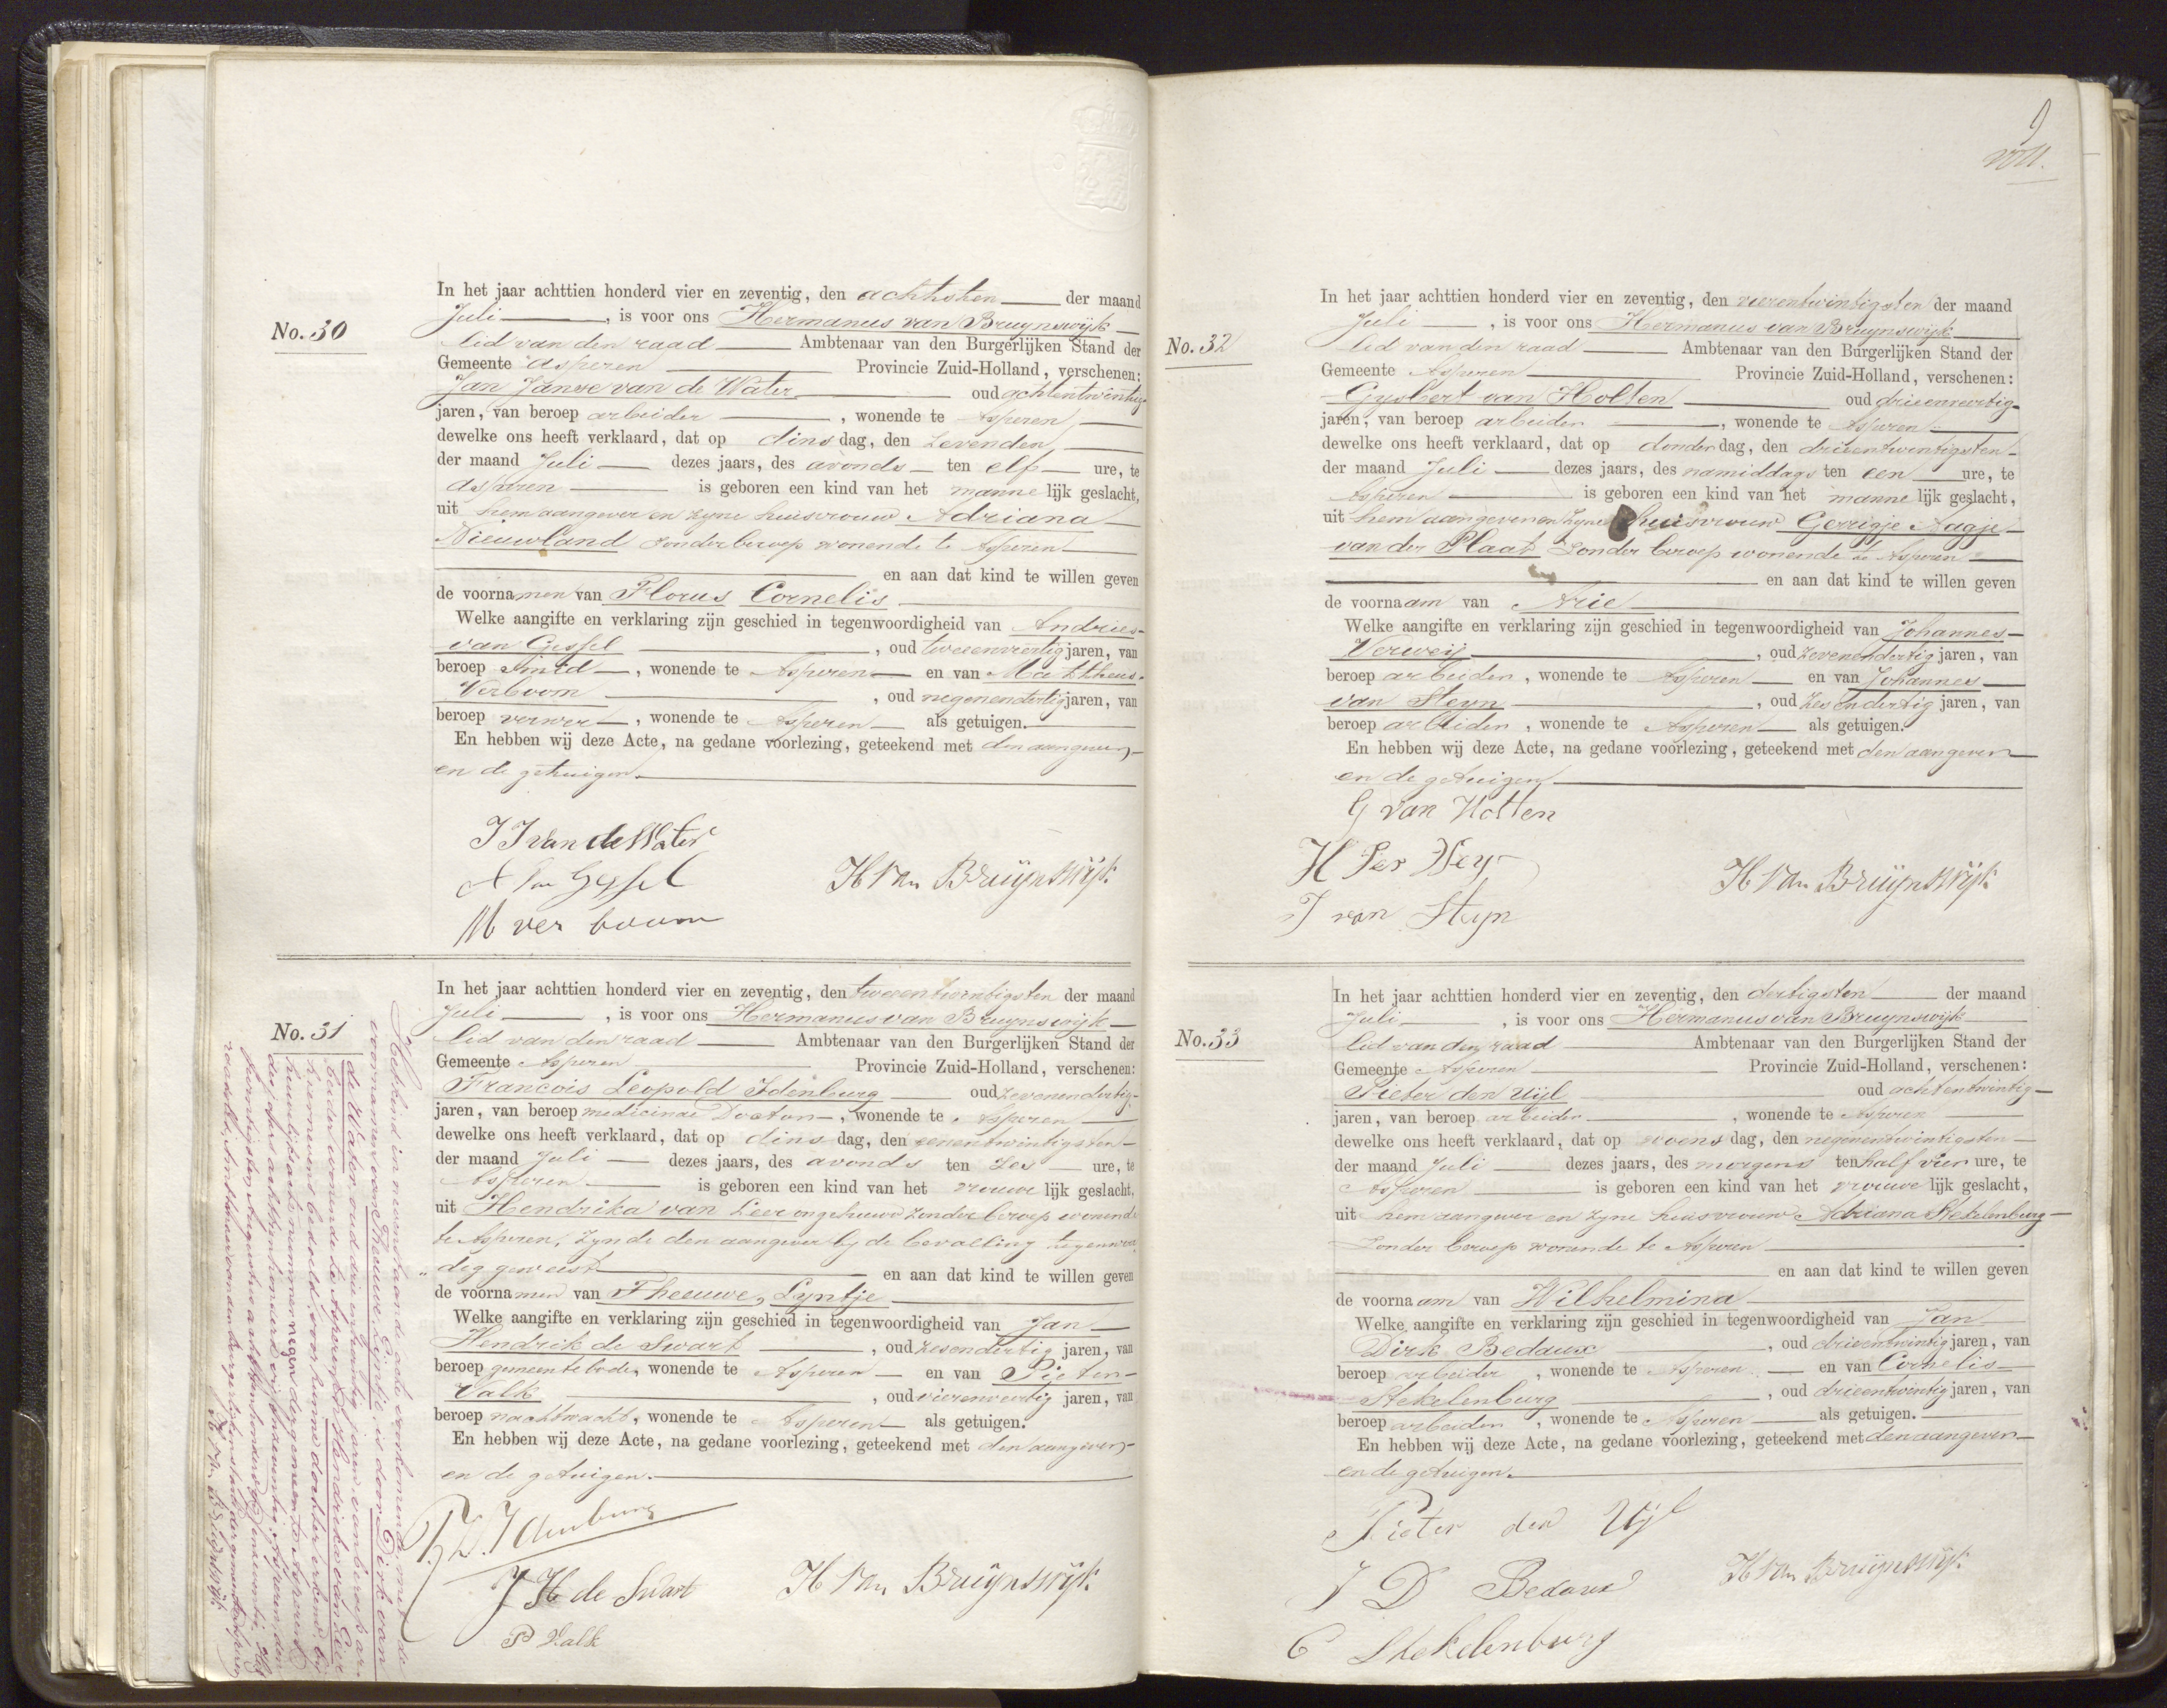 No. 30
In het jaar achttien honderd vier en zeventig, den achtsten der maand
Juli, is voor ons Hermanus van Bruynswijk
lid van den raad Ambtenaar van den Burgerlijken Stand der
Gemeente Asperen Provincie Zuid-Holland, verschenen:
Jan Janse van de Water oud achtentwintig
jaren, van beroep arbeider, wonende te Asperen,
dewelke ons heeft verklaard, dat op dinsdag, den zevenden
der maand Juli dezes jaars, des avonds ten elf ure, te
Asperen is geboren een kind van het mannelijk geslacht,
uit hem aangever en zijne huisvrouw Adriana
Nieuwland zonder beroep wonende te Asperen
en aan dat kind te willen geven
de voornamen van Florus Cornelis
Welke aangifte en verklaring zijn geschied in tegenwoordigheid van Andries
van Gessel, oud tweeenveertig jaren, van
beroep smid, wonende te Asperen en van Mattheus
Verboom, oud negenendertig jaren, van
beroep verwer, wonende te Asperen als getuigen.
En hebben wij deze Acte, na gedane voorlezing, geteekend met den aangever,
en de getuigen.
J J van de Water
A van Gessel
H van Bruijnswijk
M verboom
No. 31
In het jaar achttien honderd vier en zeventig, den tweeentwintigsten der maand
Juli, is voor ons Hermanus van Bruynswijk
lid van den raad Ambtenaar van den Burgerlijken Stand der
Gemeente Asperen Provincie Zuid-Holland, verschenen:
Francois Leopold Idenburg oud zevenendertig
jaren, van beroep medicinae Doctor, wonende te Asperen
dewelke ons heeft verklaard, dat op dinsdag, den eenentwintigsten
der maand Juli dezes jaars, des avonds ten zes ure, te
Asperen is geboren een kind van het vrouwelijk geslacht,
uit Hendrika van Leer ongehuwd zonder beroep wonende
te Asperen, zynde den aangever by de bevalling tegenwoor
"dig geweest en aan dat kind te willen geven
de voornamen van Theeuwe, Lyntje
Welke aangifte en verklaring zijn geschied in tegenwoordigheid van Jan
Hendrik de Swart, oud zesendertig jaren, van
beroep gemeentebode, wonende te Asperen en van Pieter
Valk, oud vierenveertig jaren, van
beroep nachtwacht, wonende te Asperen als getuigen.
En hebben wij deze Acte, na gedane voorlezing, geteekend met den aangever,
en de getuigen.
F. L. Idenburg
J H de Swart
H van Bruijnswijk
P Valk
Het kind in nevenstaande acte voorkomende, met de
voornamen van Theeuwe Lijntje, is door Dirk van
de Water, oud drie en twintig jaren, van beroep ar-
beider wonende te Asperen, en Hendrika van Leer
hiernevens bedoeld, voor hunne dochter erkend bij
huwelijksacte nummer negen der gemeente Asperen
des jaars achttienhonderd vijfenzeventig. Asperen den
twintigsten Augustus achttienhonderd vijfenzeventig. Het
raadslid, Ambtenaar van den Burgerlijken stand der gemeente Asperen
H. van Bruijnswijk
No. 32
In het jaar achttien honderd vier en zeventig, den vierentwintigsten der maand
Juli, is voor ons Hermanus van Bruynswijk
lid van den raad Ambtenaar van den Burgerlijken Stand der
Gemeente Asperen Provincie Zuid-Holland, verschenen:
Gysbert van Holten oud drieenveertig
jaren, van beroep arbeider, wonende te Asperen
dewelke ons heeft verklaard, dat op donderdag, den drieentwintigsten
der maand Juli dezes jaars, des namiddags ten een ure, te
Asperen is geboren een kind van het mannelijk geslacht,
uit hem aangever en zyne huisvrouw Gerrigje Aagje
van der Plaat zonder beroep wonende te Asperen
en aan dat kind te willen geven
de voornaam van Arie
Welke aangifte en verklaring zijn geschied in tegenwoordigheid van Johannes
Verweij, oud zevenendertig jaren, van
beroep arbeider, wonende te Asperen en van Johannes
van Steyn, oud zesendertig jaren, van
beroep arbeider, wonende te Asperen als getuigen.
En hebben wij deze Acte, na gedane voorlezing, geteekend met den aangever
en de getuigen
G van Holten
H van Bruijnswijk
J van Steyn
No. 33
In het jaar achttien honderd vier en zeventig, den dertigsten der maand
Juli, is voor ons Hermanus van Bruynswijk
lid van den raad Ambtenaar van den Burgerlijken Stand der
Gemeente Asperen Provincie Zuid-Holland, verschenen:
Pieter den Uijl oud achtentwintig
jaren, van beroep arbeider, wonende te Asperen
dewelke ons heeft verklaard, dat op woensdag, den negenentwintigsten
der maand Juli dezes jaars, des morgens ten half vier ure, te
Asperen is geboren een kind van het vrouwelijk geslacht,
uit hem aangever en zyne huisvrouw Adriana Stekelenburg
zonder beroep wonende te Asperen
en aan dat kind te willen geven
de voornaam van Wilhelmina
Welke aangifte en verklaring zijn geschied in tegenwoordigheid van Jan
Dirk Bedaux, oud drieentwintig jaren, van
beroep arbeider, wonende te Asperen en van Cornelis
Stekelenburg, oud drieentwintig jaren, van
beroep arbeider, wonende te Asperen als getuigen.
En hebben wij deze Acte, na gedane voorlezing, geteekend met den aangever
en de getuigen.
Pieter den Uyl
J D Bedaux
H van Bruijnswijk
C Stekelenburg